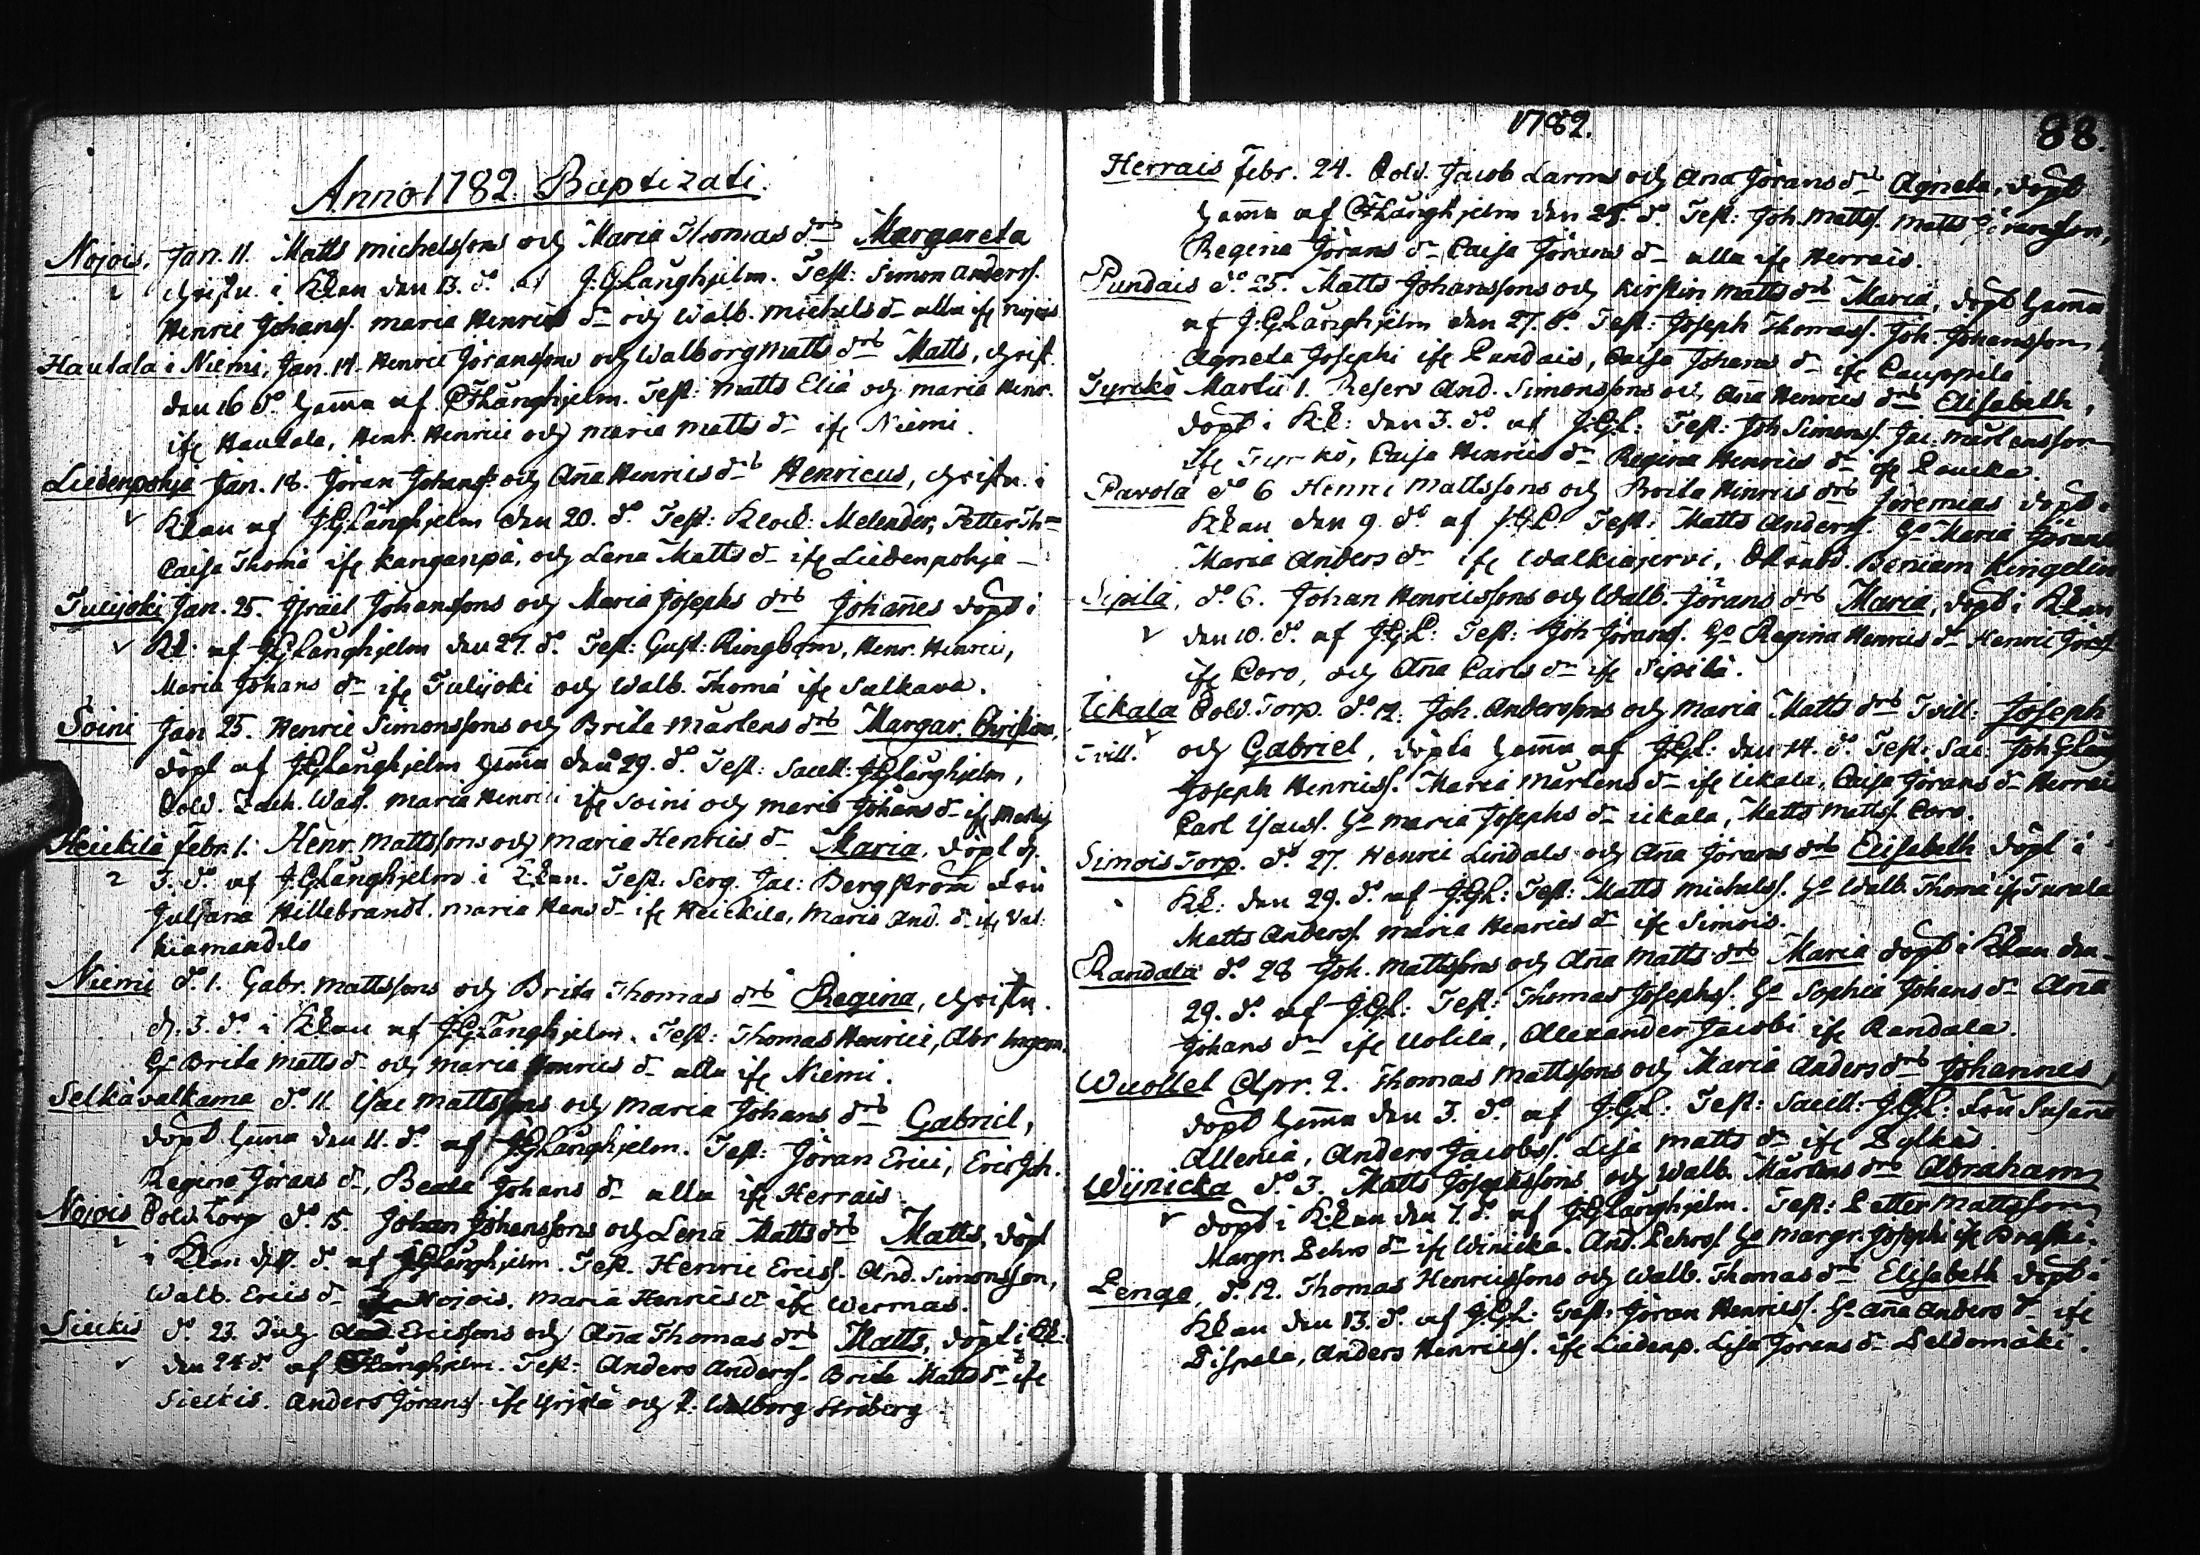 Anno 1782. Baptizati.
Nojois, Jan. 11. Matts Michelssons och Maria Thomas drs Margareta
christn. i Kkan den 13. do af J.G. Långhjelm. Test: Simon Anderss.
Henric Johanss. Maria Henrics dr och Walb. Michels dr alla ifr. Nojois
Hautala i Niemi, Jan. 14. Henric Jöranssons och Walborg Matts drs Matts, christ.
den 16 do hemma af Långhjelm. Test: Matts Eliæ och Maria Henr.
ifr Hautala, Henr. Henrici och Maria Matts dr ifr Niemi.
Liedenpohja Jan. 18. Jöran Johanss och Aña Henrics drs Henricus, christn. i
Kkan af J.G. Långhjelm den 20. do Test: Klock: Melender, Petter Th=
Caisa Thomæ ifr Kangaspä, och Lena Matts dr ifr Liedenpohja
Tulijoki Jan. 25. Israel Johanssons och Maria Josephs drs Johañes döpt i
Kk: af J.G. Långhjelm den 27. do Test: Gust: Ringbom, Henr. Henrici,
Maria Johans dr ifr Tulijoki och Walb. Thomæ ifr Salkava.
Soini Jan 25. Henric Simonssons och Brita Mårtens drs Margar. Christina,
döpt af J.G. Långhjelm hemma den 29. do Test: Sacell: J.G. Långhjelm,
Sold. Zach. Was. Maria Henrici ifr Soini och Maria Johans dr ifr
Heickilä Febr. 1. Henr. Mattssons och Maria Henrics dr Maria, döpt d.
3. do af J.G. Långhjelm i Kkan. Test: Serg. Jac: Bergström Fru
Juliana Hillebrandt. Maria Hans dr ifr Heickilä, Maria And. dr ifr Val
kiamandils
Niemi do 1. Gabr. Mattssons och Brita Thomas drs Regina, christn.
d. 3. do i Kkan af J.G. Långhjelm. Test: Thomas Henrici, Abr.
Brita Matts dr och Maria Henrics dr alla ifr Niemi.
Selkävalkama do 11. Isac Mattssons och Maria Johans drs Gabriel,
döpt hemma den 11. do af J.G. Långhjelm. Test: Jöran Erici, Eric Joh.
Regina Jörans dr, Beata Johans dr alla ifr Herrais.
Nojois Sold. Torp do 15. Johan Johanssons och Lena Matts drs Matts, döpt
i Kkan d. do af J.G. Långhjelm. Test. Henric Ericss. And. Simonsson,
Walb. Erics dr Nojois. Maria Henrics dr ifr Wermas.
Sieckis do 23. And Ericssons och Aña Thomas drs Matts, döpt i Kk:
den 24 do af Långhjelm. Test: Anders Anderss. Brita Matts dr ifr
Sieckis. Anders Jöranss. ifr Yrjölä och P. Walborg Ströberg
1782.
88.
Herrais Febr. 24. Sold. Jacob Larms och Ana Jörans drs Agneta, döpt
hemma af Långhjelm den 25. do Test: Joh. Mattss. Matts Göransson,
Regina Jörans dr Caisa Jörans dr alla ifr Herrais.
Pundais do 25. Matts Johanssons och Kirstin Matts drs Maria, döpt hemma
af J.G. Långhjelm den 27. do Test: Joseph Thomass. Joh. Johansson,
Agneta Josephi ifr Pundais, Caisa Johans dr ifr Cauppila
Tyrckö Martii 1. Reserv And. Simonssons och Aña Henrics drs Elisabeth,
döpt i Kk: den 3. do af J.G.L: Test: Joh Simonss. Jac: Mårtensson
ifr Tyrkö, Caisa Henrics dr Regina Henrics dr ifr Loucka.
Pavola do 6 Henric Mattssons och Brita Hinrics drs Jeremias döpt i
Kkan den 9. do af J.G.L. Test: Matts Anderss. Ho Maria Jörans
Maria Anders dr ifr Walkiajervi, Beniam Ringelin
Sipilä, do 6. Johan Henricssons och Walb. Jörans drs Maria, döpt i Kkan
den 10. do af J.G.L: Test: Joh Jöranss. Ho Regina Henrics dr Henric Jörss
ifr Coro, och Aña Carls dr ifr Sipilä.
Uckala Sold. Torp. do 12. Joh. Anderssons och Maria Matts drs Tvill: Joseph
Tvill. och Gabriel, döpta hemma af J.G.L: den 14. do Test: Sac: Joh G Lång
Joseph Henricss. Maria Mårtens dr ifr Uckala, Caisa Jörans dr Herrais
Carl Isacss. Ho Maria Josephs dr Uckala, Matts Mattss. Coro.
Simois Torp. do 27. Henric Lindals och Aña Jörans drs Elisabeth döpt i
Kk: den 29. do af J.G.L: Test: Matts Michelss. Ho Walb. Thomæ ifr Turala
Matts Anderss. Maria Henrics dr ifr Simois.
Randala do 28 Joh. Mattssons och Aña Matts drs Maria döpt i Kkan den
29. do af J.G.L: Test: Thomas Josephss. Ho Sophia Johans dr Aña
Johans dr ifr Uolila, Alexander Jacobi ifr Randala.
Wuollet Apr. 2. Thomas Mattssons och Maria Anders drs Johannes,
döpt hemma den 3. do af J.G.L: Test: Sacell: J.G.L: Fru Susanna
Allenia, Anders Jacobss. Lisa Matts dr ifr Pylkäs.
Wijnicka do 3. Matts Josephssons och Walb. Mårtens drs Abraham
döpt i Kkan den 7. do af J.G. Långhjelm. Test: Petter Mattsson,
Margr. Pehrs dr ifr Winicka. And. Pehrss. Ho Margr. Josephi ifr Braski.
Lenqe, do 12. Thomas Henricssons och Walb. Thomas drs Elisabeth döpt i
Kkan den 13. do af J.G.L: Test: Jöran Henricss. Ho Aña Anders dr ifr
Pispala, Anders Henricss. ifr Liedenp. Lisa Jörans dr Peldomäki.